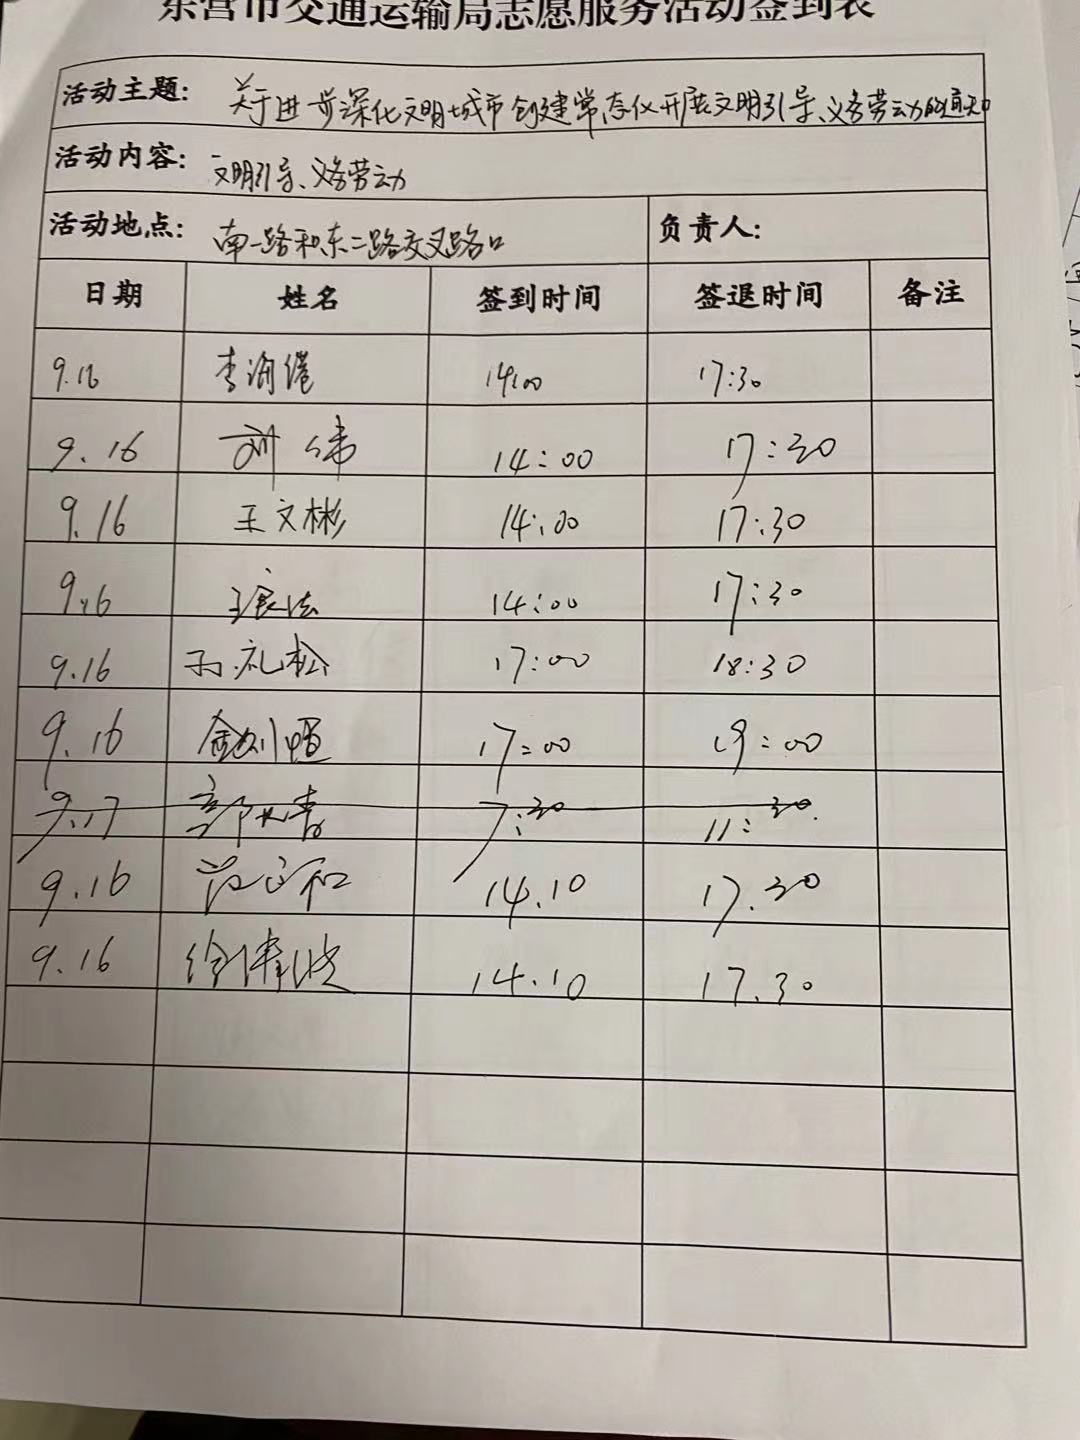 东营市交通运输局志愿服务活动签到表
活动主题: 关于进一步深化文明城市创建常态化开展文明引导、义务劳动的通知
活动内容: 文明引导、义务劳动
活动地点: 南一路和东二路交叉路口 负责人:
日期 姓名 签到时间 签退时间 备注
9.16 李海港 14:00 17:30
9.16 刘伟 14:00 17:30
9.16 王文彬 14:00 17:30
9.16 14:00 17:30
9.16 孙礼松 17:00 18:30
9.16 17:00 19:00
9.17 7:30 11:30
9.16 14.10 17.30
9.16 徐伟波 14.10 17.30